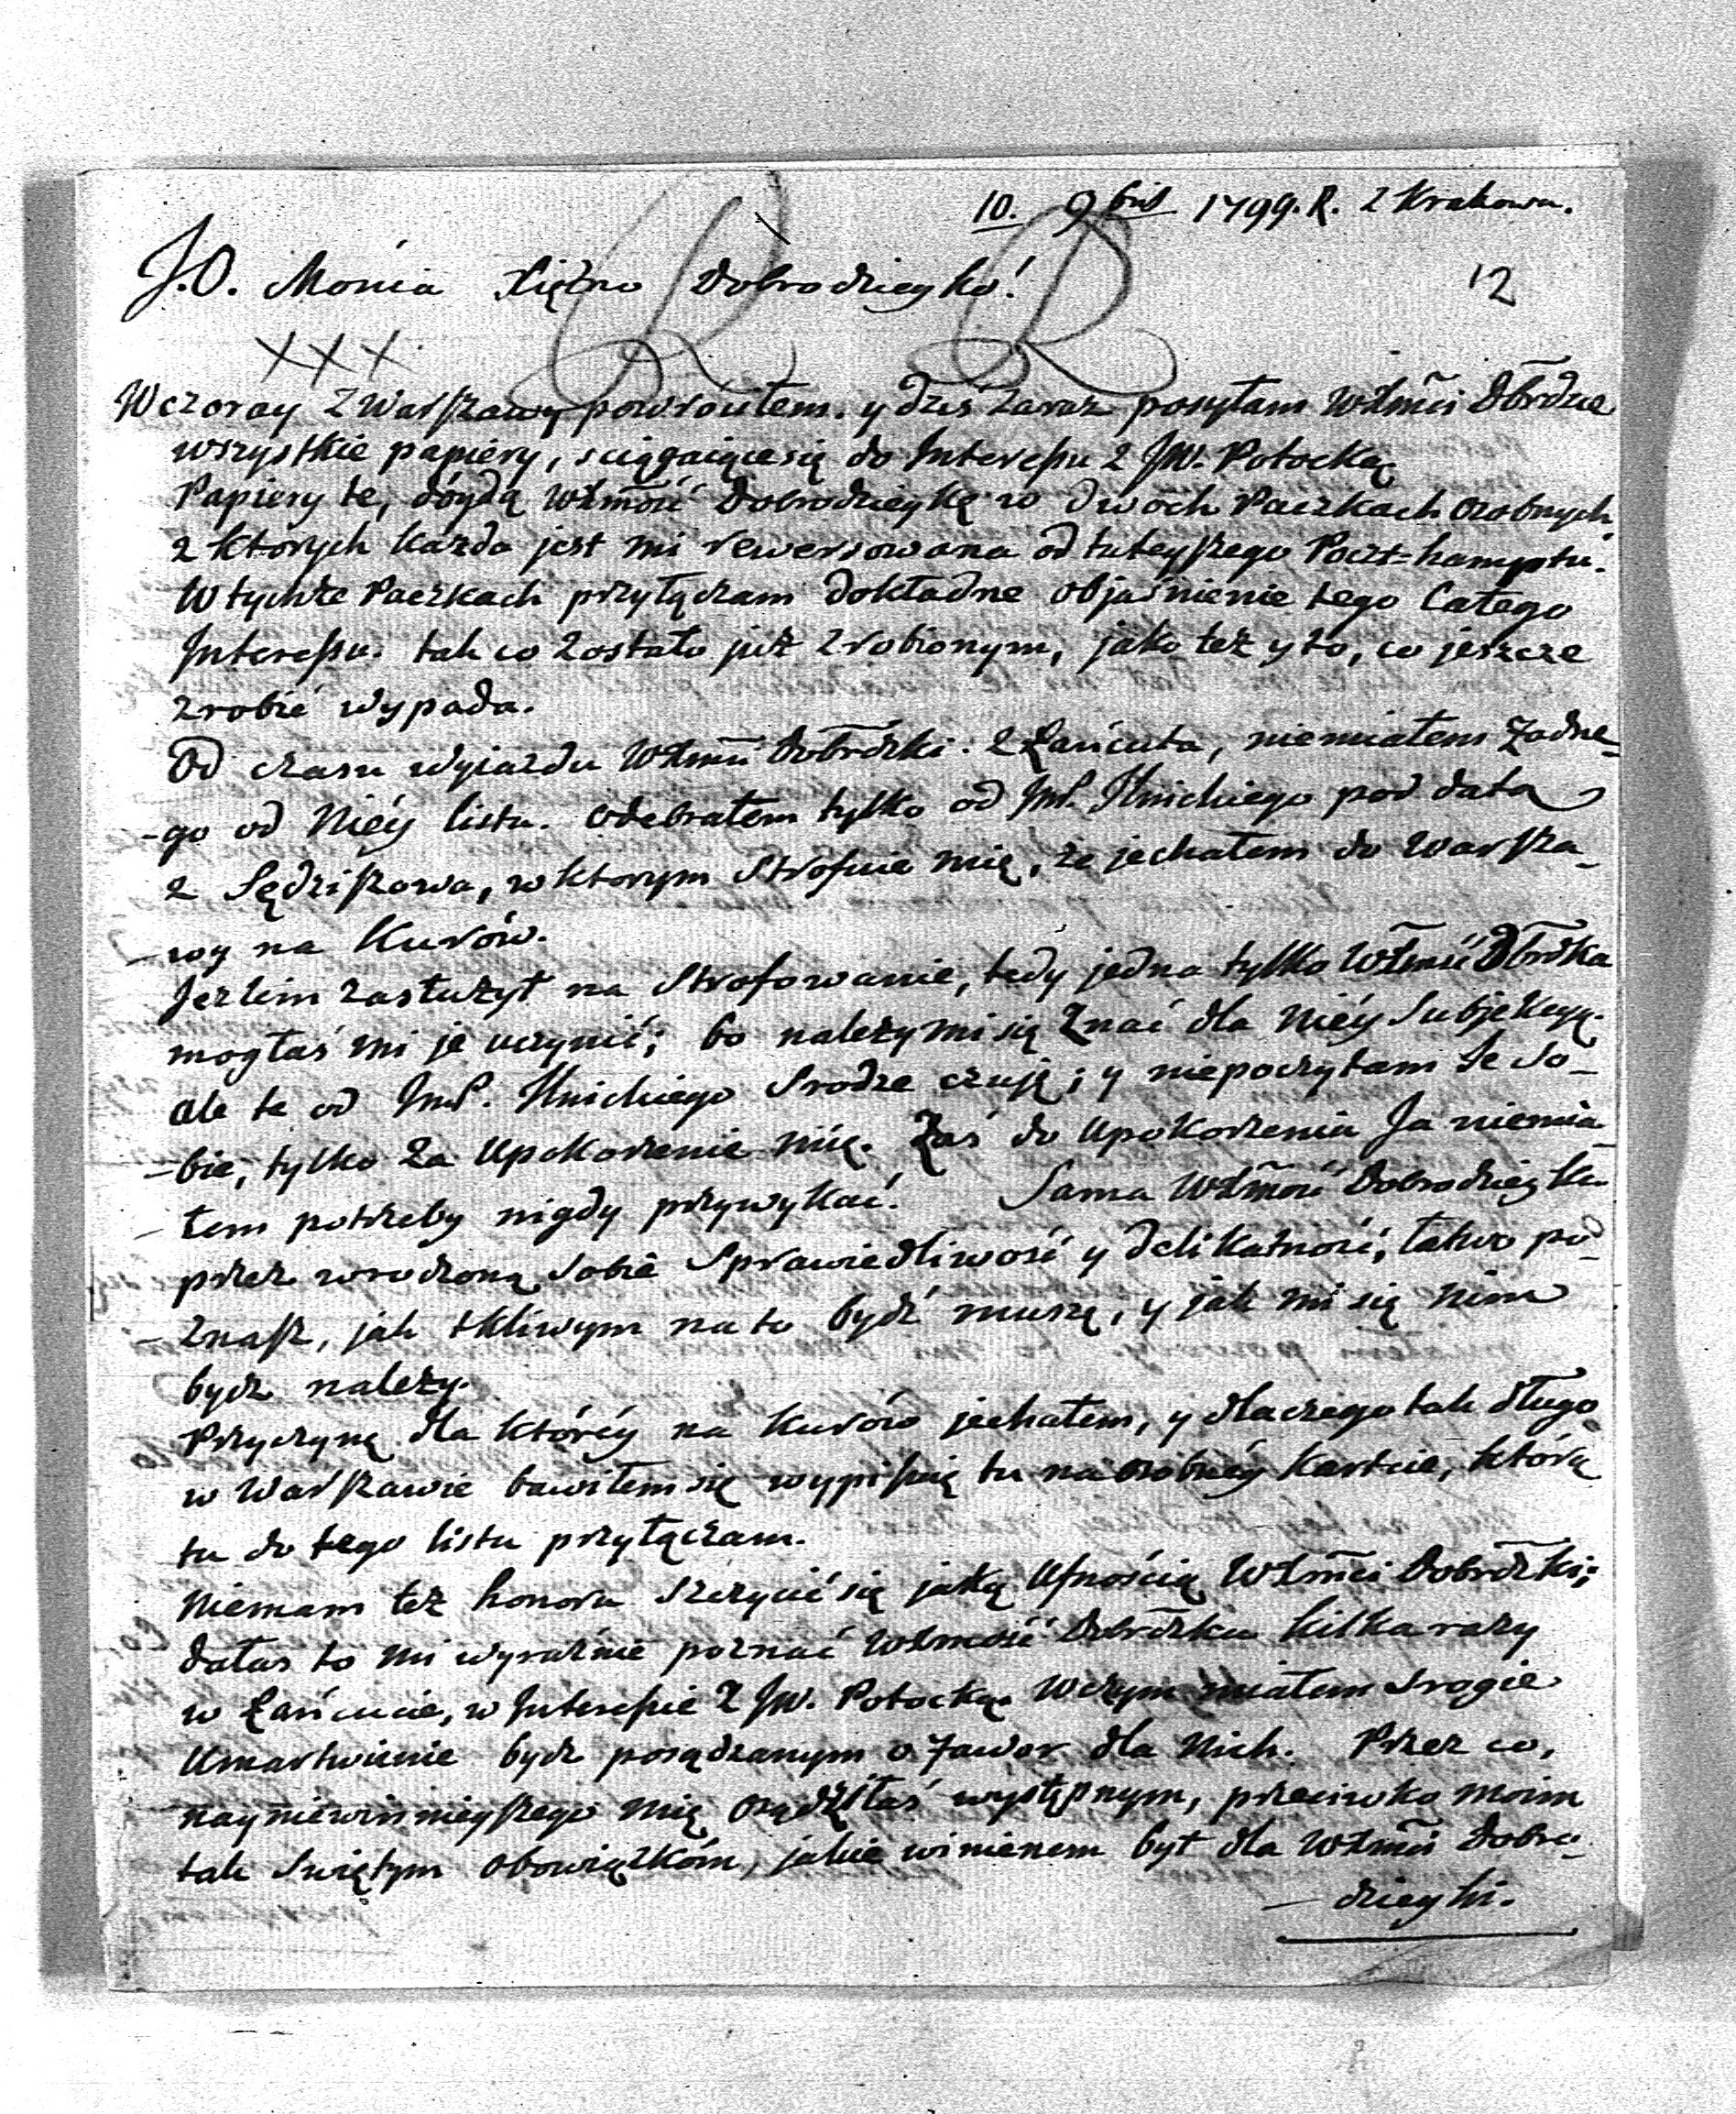 10. 9bris 1799. R. z Krakowa.
12
J.O. Mońia Xiężno Dobrodzieyko!
XXX
Wczoray z Warszawy powróciłem. y dziś zaraz posyłam WXmći Dbrdzce
wszystkie papiery, sciągaiące się do Interessu z JW. Potocką
Papiery te, dóydą WXmość Dobrodzieykę w dwóch Paczkach osobnych
z ktorych każda jest mi rewersowana od tuteyszego Poczt=hamptu.
W tychże Paczkach przyłączam dokładne objaśnienie tego Całego
Interessu. tak co zostało już zrobionym, jako też y to, co jeszcze
zrobić wypada.
Od czasu wyiazdu WXmći Dobrdzki. z Łańcuta, niemiałem żadne-
-go od Niéy listu. odebrałem tylko od JmP. Ilnickiego pod data
z Sędziszowa, w ktorym Strofuie mię, że jechałem do Warsza-
-wy na Kurów.
Jeżlim zasłużył na Strofowanie, tedy jedna tylko WXmść Dbrdzka
mogłaś mi je uczynić; bo należy mi się znać dla Niéy Subjekcyą.
ale te od JmP. Ilnickiego Srodze czuję; y niepoczytam Je So-
-bie, tylko za Upokorzenie mię. Zaś do Upokorzenia Ja niemia-
-łem potrzeby nigdy przywykać. Sama WXmość Dobrodzieyka
przez wrodzoną Sobie Sprawiedliwość y delikatność, łatwo po-
-znasz, jak tkliwym na to bydź muszę, y jak mi się nim
bydz należy.
Przyczynę dla któréy na Kurów jechałem, y dlaczego tak długo
w Warszawie bawiłem się wypiszię tu na osobnéy karcie, którą
tu do tego listu przyłączam.
Niemam też honoru szczycić się jaką Ufnością WXmći Dobrdzki;
dałaś to mi wyraźnie poznać WXmość Dobrdzka kilka razy
w Łańcucie, w Interessie z JW. Potocką. Wczym miałem srogie
Umartwienie bydz posądzanym o fawor dla Nich. Przez co,
nayniewinnieyszego mię osądziłaś występnym, przeciwko moim
tak Swiętym obowiązkóm, jakie winienem był dla WXmći Dobro-
-dzieyki.